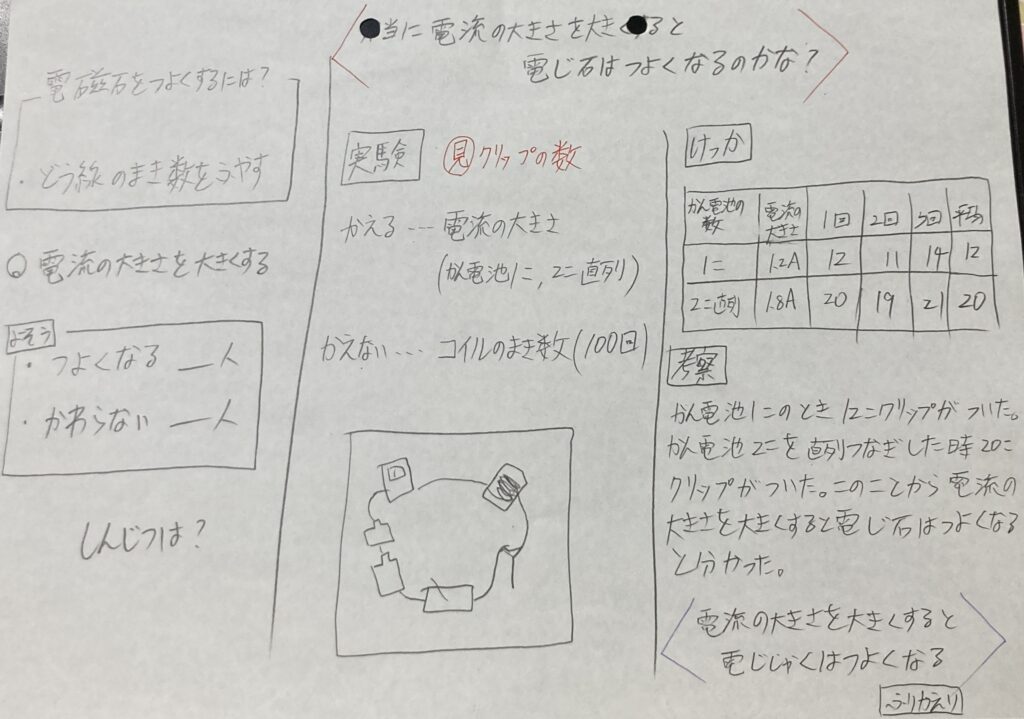 当に電流の大きさを大きくすると
電じ石はつよくなるのかな?
電磁石をつよくするには?
・どう線のまき数をふやす
電流の大きさを大きくする
よそう
・つよくなる __人
・かわらない __人
しんじつは?
実験 見 クリップの数
かえる --- 電流の大きさ
(かん電池1こ, 2こ直列)
かえない --- コイルのまき数(100回)
けっか
かん電池の数 電流の大きさ 1回 2回 3回 平均
1こ 1.2A 12 11 14 12
2こ直列 1.8A 20 19 21 20
考察
かん電池1このとき12こクリップがついた。
かん電池2こを直列つなぎした時20こ
クリップがついた。このことから電流の
大きさを大きくすると電じ石はつよくなる
と分かった。
電流の大きさを大きくすると
電じしゃくはつよくなる
ふりかえり